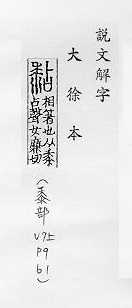 說文解字
大徐本
黏
相箸也从黍
占聲女廉切
(黍部 V7上 P9 b1)